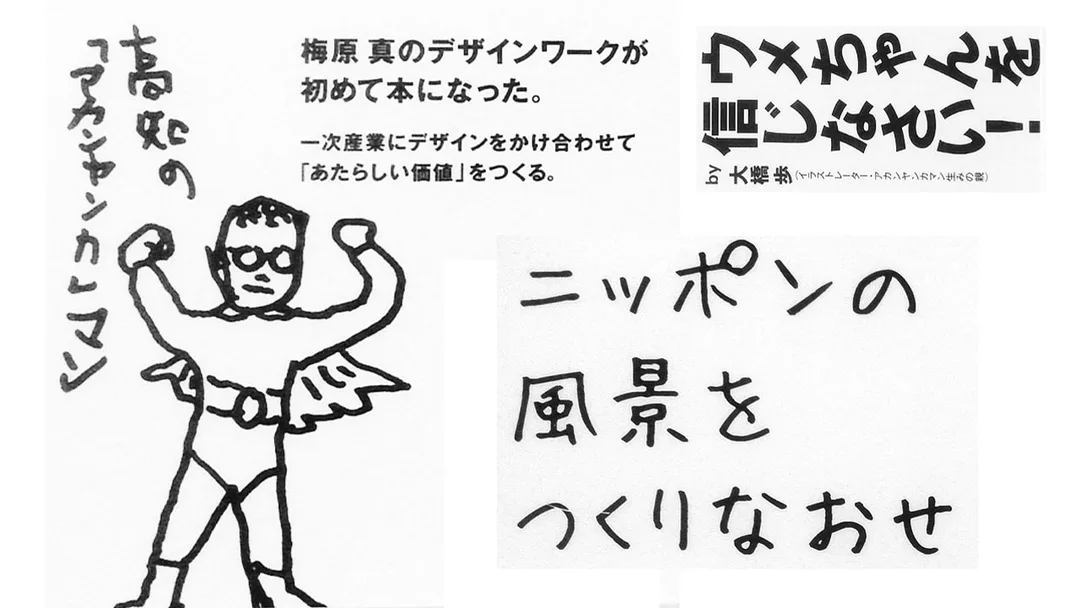 高知の
「アカンヤンカマン」
梅原 真のデザインワークが
初めて本になった。
一次産業にデザインをかけ合わせて
「あたらしい価値」をつくる。
ウメちゃんを
信じなさい！
by 大橋歩（イラストレーター・アカンヤンカマン生みの親）
ニッポンの
風景を
つくりなおせ